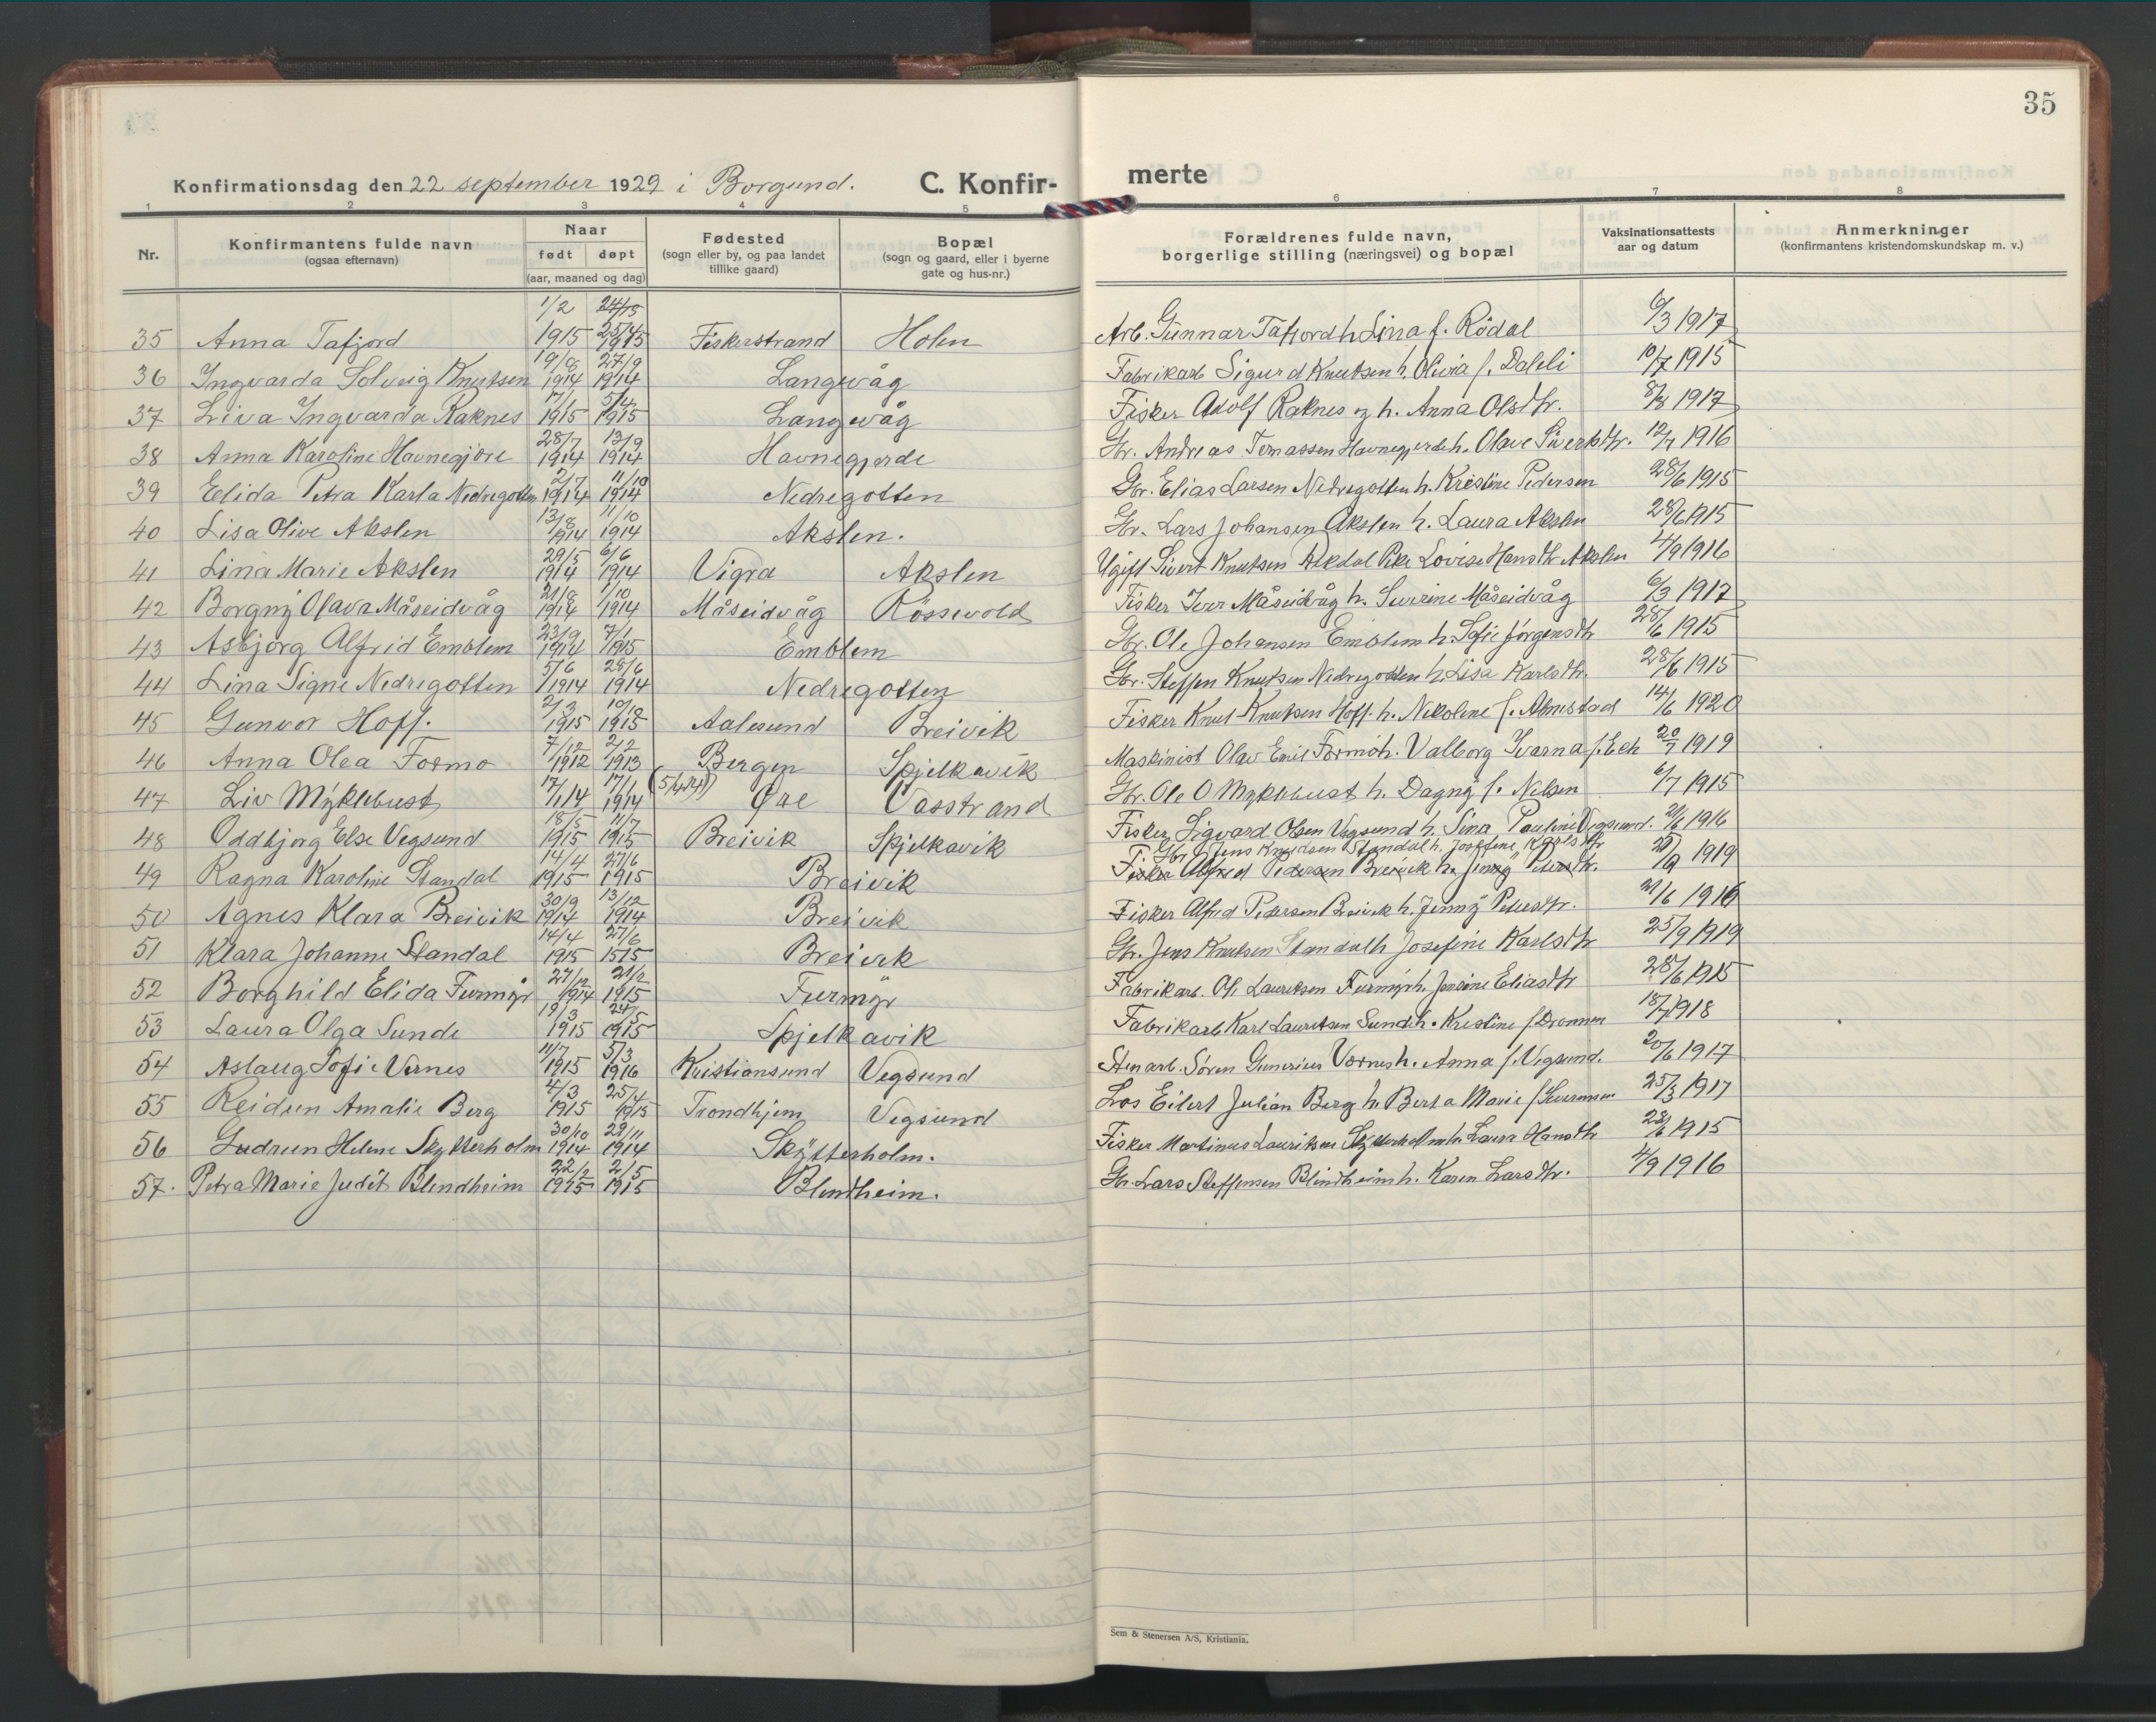 35
Konfirmationsdag den 22 september 1929 i Borgund. C. Konfir- merte
1 2 3 4 5 6 7 8
Nr. Konfirmantens fulde navn (ogsaa efternavn) Naar født døpt (aar, maaned og dag) Fødested (sogn eller by, og paa landet tillike gaard) Bopæl (sogn og gaard, eller i byerne gate og hus-nr.) Forældrenes fulde navn, borgerlige stilling (næringsvei) og bopæl Vaksinationsattests aar og datum Anmerkninger (konfirmantens kristendomskundskap m. v.)
35 Anna Tafjord 1/2 1915 25/4 1915 Fiskerstrand Holen Arb. Gunnar Tafjord h. Lina f. Rödal 6/3 1917
36 Ingvarda Solveig Knutsen 19/8 1914 27/9 1914 Langevåg Fabrikarb Sigurd Knutsen h. Olivia f. Daleli 10/7 1915
37 Liva Ingvarda Raknes 1915 5/4 1915 Langevåg Fisker Adolf Raknes og h. Anna Olsdtr. 8/8 1917
38 Anna Karoline Havnegjöre 28/7 1914 13/9 1914 Havnegjerde Gbr. Andreas Tomassen Havnegjerde h. Olave Sivertsdtr. 12/7 1916
39 Elida Petra Karla Nedregotten 2/7 1914 11/10 1914 Nedregotten Gbr. Elias Larsen Nedregotten h. Kristine Pedersen 28/6 1915
40 Lisa Olive Akslen 13/8 1914 11/10 1914 Akslen. Gbr. Lars Johansen Akslen h. Laura Akslen 28/6 1915
41 Lina Marie Akslen 29/5 1914 6/6 1914 Vigra Akslen Ugift Sivert Knutsen Alkdal Pike Lovise Hansdtr Akslen 4/9 1916
42 Borgny Olava Måseidvåg 21/8 1914 1/10 1914 Måseidvåg Rössevold Fisker Iver Måseidvåg h. Severine Måseidvåg 6/3 1917
43 Asbjorg Alfrid Emblem 23/9 1914 7/1 1915 Emblem Gbr. Ole Johansen Emblem h. Sofie Jörgensdtr 28/6 1915
44 Lina Signe Nedregotten 5/6 1914 28/6 1914 Nedregotten Gbr. Steffen Knutsen Nedregotten h. Lisa Karlsdtr. 28/6 1915
45 Gunvor Hoff. 2/3 1915 10/10 1915 Aalesund Breivik Fisker Knut Knutsen Hoff. h. Nikoline f. Almestad 14/6 1920
46 Anna Olea Formo 7/12 1912 2/2 1913 Bergen Spjelkavik Maskinist Olav Emil Formo h. Valborg Ivarna f. Eck 20/7 1919
47 Liv Myklebust 17/1 14 17/1 1914 Øre Vasstrand Gbr. Ole O Myklebust h. Dagny f. Nilsen 6/7 1915
48 Oddbjorg Else Vegsund 18/5 1915 11/7 1915 Breivik Spjelkavik Fisker Sigvard Olsen Vegsund h. Sina Pauline Vegsund. 21/6 1916
Gbr Jens Knudsen Standal h. Josefine Karlsdtr
49 Ragna Karoline Standal 14/4 1915 27/6 1915 Breivik Fisker Alfred Pedersen Breivik h. Jenny Petersdtr. 25/9 1919
50 Agnes Klara Breivik 30/9 1914 13/12 1914 Breivik Fisker Alfred Pedersen Breivik h. Jenny Petersdtr. 21/6 1916
51 Klara Johanne Standal 14/4 1915 27/6 1515 Breivik Gbr. Jens Knutsen Standal h Josefine Karlsdtr 25/9 1919
52 Borghild Elida Furmyr 27/12 1914 21/2 1915 Furmyr Fabrikarb. Ole Lauritsen Furmyr h. Jensine Eliasdtr 28/6 1915
53 Laura Olga Sunde 19/3 1915 24/5 1915 Spjelkavik Fabrikarb Karl Lauritsen Sunde h. Kristine f. Dronnen 18/7 1918
54 Aslaug Sofie Vernes 11/7 1915 5/3 1916 Kristiansund Vegsund Stenarb. Sören Gunerius Vornes h. Anna f. Vegsund. 20/6 1917
55 Reidun Amalie Berg 4/3 1915 25/4 1915 Trondhjem Vegsund Los Eilert Julian Berg h. Berta Marie f. 25/3 1917
56 Gudrun Helene Skytterholm 30/10 1914 29/11 1914 Skytterholm. Fisker Martinus Lauritsen Skytterholm h. Laura Hansdtr 28/6 1915
57. Petra Marie Judit Blindheim 22/2 1915 2/5 1915 Blindheim. Gbr. Lars Steffensen Blindheim h. Karen Larsdtr. 4/9 1916
Sem & Stenersen A/S, Kristiania.